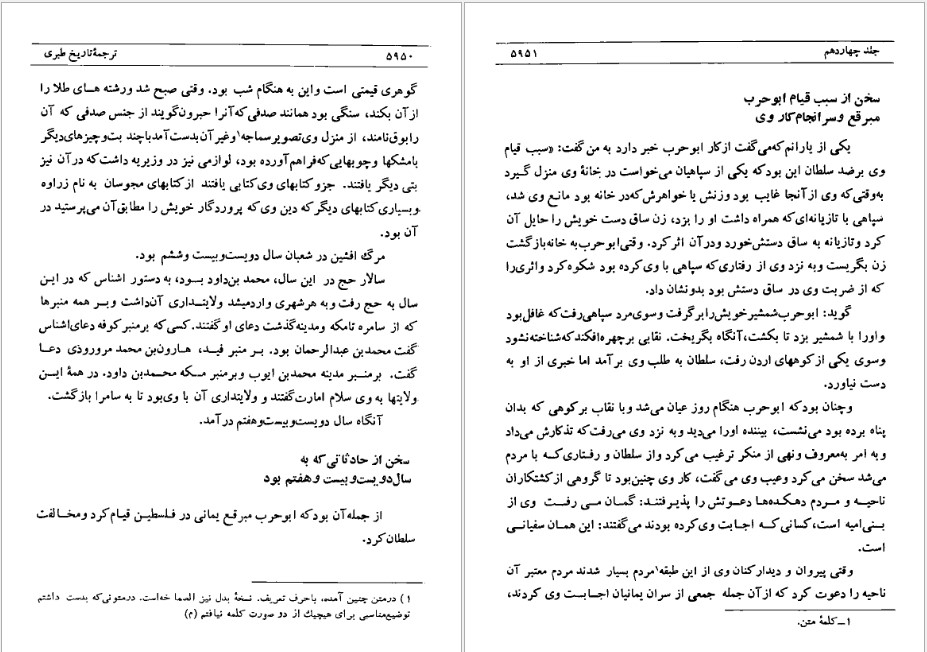 ۵۹۵۰
ترجمهٔ تاریخ طبری
گوهری قیمتی است و این به هنگام شب بود. وقتی صبح شد ورشته های طلا را
از آن بکند، سنگی بود همانند صدفی که آنرا حبرون گویند از جنس صدفی که آن
را بوق نامند، از منزل وی تصویر سماجه۱ وغیر آن بدست آمد با چند بت و چیزهای دیگر
با مشکها و چوبهایی که فراهم آورده بود، لوازمی نیز در وزیریه داشت که در آن نیز
بتی دیگر یافتند. جزو کتابهای وی کتابی یافتند از کتابهای مجوسان به نام زراوه
و بسیاری کتابهای دیگر که دین وی که پروردگار خویش را مطابق آن می‌پرستید در
آن بود.
مرگ افشین در شعبان سال دویست و بیست و ششم بود.
سالار حج در این سال، محمد بن داود بود، به دستور اشناس که در این
سال به حج رفت وبه هر شهری وارد میشد ولایتداری آن داشت و بر همه منبرها
که از سامره تا مکه ومدینه گذشت دعای او گفتند. کسی که بر منبر کوفه دعای اشناس
گفت محمد بن عبدالرحمان بود. بر منبر فید، هارون بن محمد مروروذی دعا
گفت. بر منبر مدینه محمد بن ایوب و بر منبر مکه محمد بن داود. در همهٔ این
ولایتها به وی سلام امارت گفتند و ولایتداری آن با وی بود تا به سامرا بازگشت.
آنگاه سال دویست و بیست و هفتم در آمد.
سخن از حادثاتی که به
سال دویست و بیست و هفتم بود
از جمله آن بود که ابوحرب مبرقع یمانی در فلسطین قیام کرد و مخالفت
سلطان کرد.
۱) در متن چنین آمده، با حرف تعریف. نسخهٔ بدل نیز الصما خه است. در متونی که بدست داشتم
توضیح مناسبی برای هیچیك از دو صورت کلمه نیافتم (م)
جلد چهاردهم
۵۹۵۱
سخن از سبب قیام ابوحرب
مبرقع و سرانجام کار وی
یکی از یارانم که می‌گفت از کار ابوحرب خبر دارد به من گفت: «سبب قیام
وی بر ضد سلطان این بود که یکی از سپاهیان می‌خواست در خانهٔ وی منزل گیرد
به وقتی که وی از آنجا غایب بود وزنش یا خواهرش که در خانه بود مانع وی شد،
سپاهی با تازیانه‌ای که همراه داشت او را بزد، زن ساق دست خویش را حایل آن
کرد وتازیانه به ساق دستش خورد ودر آن اثر کرد. وقتی ابوحرب به خانه بازگشت
زن بگریست وبه نزد وی از رفتاری که سپاهی با وی کرده بود شکوه کرد و اثری را
که از ضربت وی در ساق دستش بود بدو نشان داد.
گوید: ابوحرب شمشیر خویش را بر گرفت وسوی مرد سپاهی رفت که غافل بود
و او را با شمشیر بزد تا بکشت، آنگاه بگریخت. نقابی بر چهره افکند که شناخته نشود
وسوی یکی از کوههای اردن رفت، سلطان به طلب وی بر آمد اما خبری از او به
دست نیاورد.
و چنان بود که ابوحرب هنگام روز عیان می‌شد و با نقاب بر کوهی که بدان
پناه برده بود می‌نشست، بیننده او را می‌دید وبه نزد وی می‌رفت که تذکارش می‌داد
و به امر به معروف ونهی از منکر ترغیب می‌کرد واز سلطان و رفتاری که با مردم
می‌شد سخن می‌کرد وعیب وی می‌گفت، کار وی چنین بود تا گروهی از کشتکاران
ناحیه و مردم دهکده‌ها دعوتش را پذیرفتند: گمان می رفت وی از
بنی‌امیه است، کسانی که اجابت وی کرده بودند می‌گفتند: این همان سفیانی
است.
وقتی پیروان و دیدار کنان وی از این طبقه۱ مردم بسیار شدند مردم معتبر آن
ناحیه را دعوت کرد که از آن جمله جمعی از سران یمانیان اجابت وی کردند،
۱ـ کلمهٔ متن.